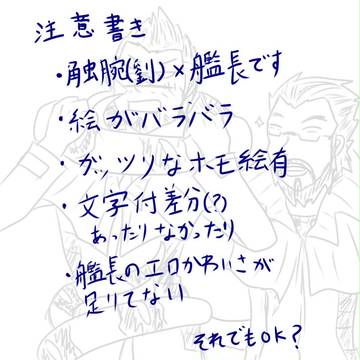 注意書き
・触腕(劉)×艦長です
・絵がバラバラ
・ガッツリなホモ絵有
・文字付差分(?)
あったりなかったり
・艦長のエロかわいさが
足りてない
それでもOK?